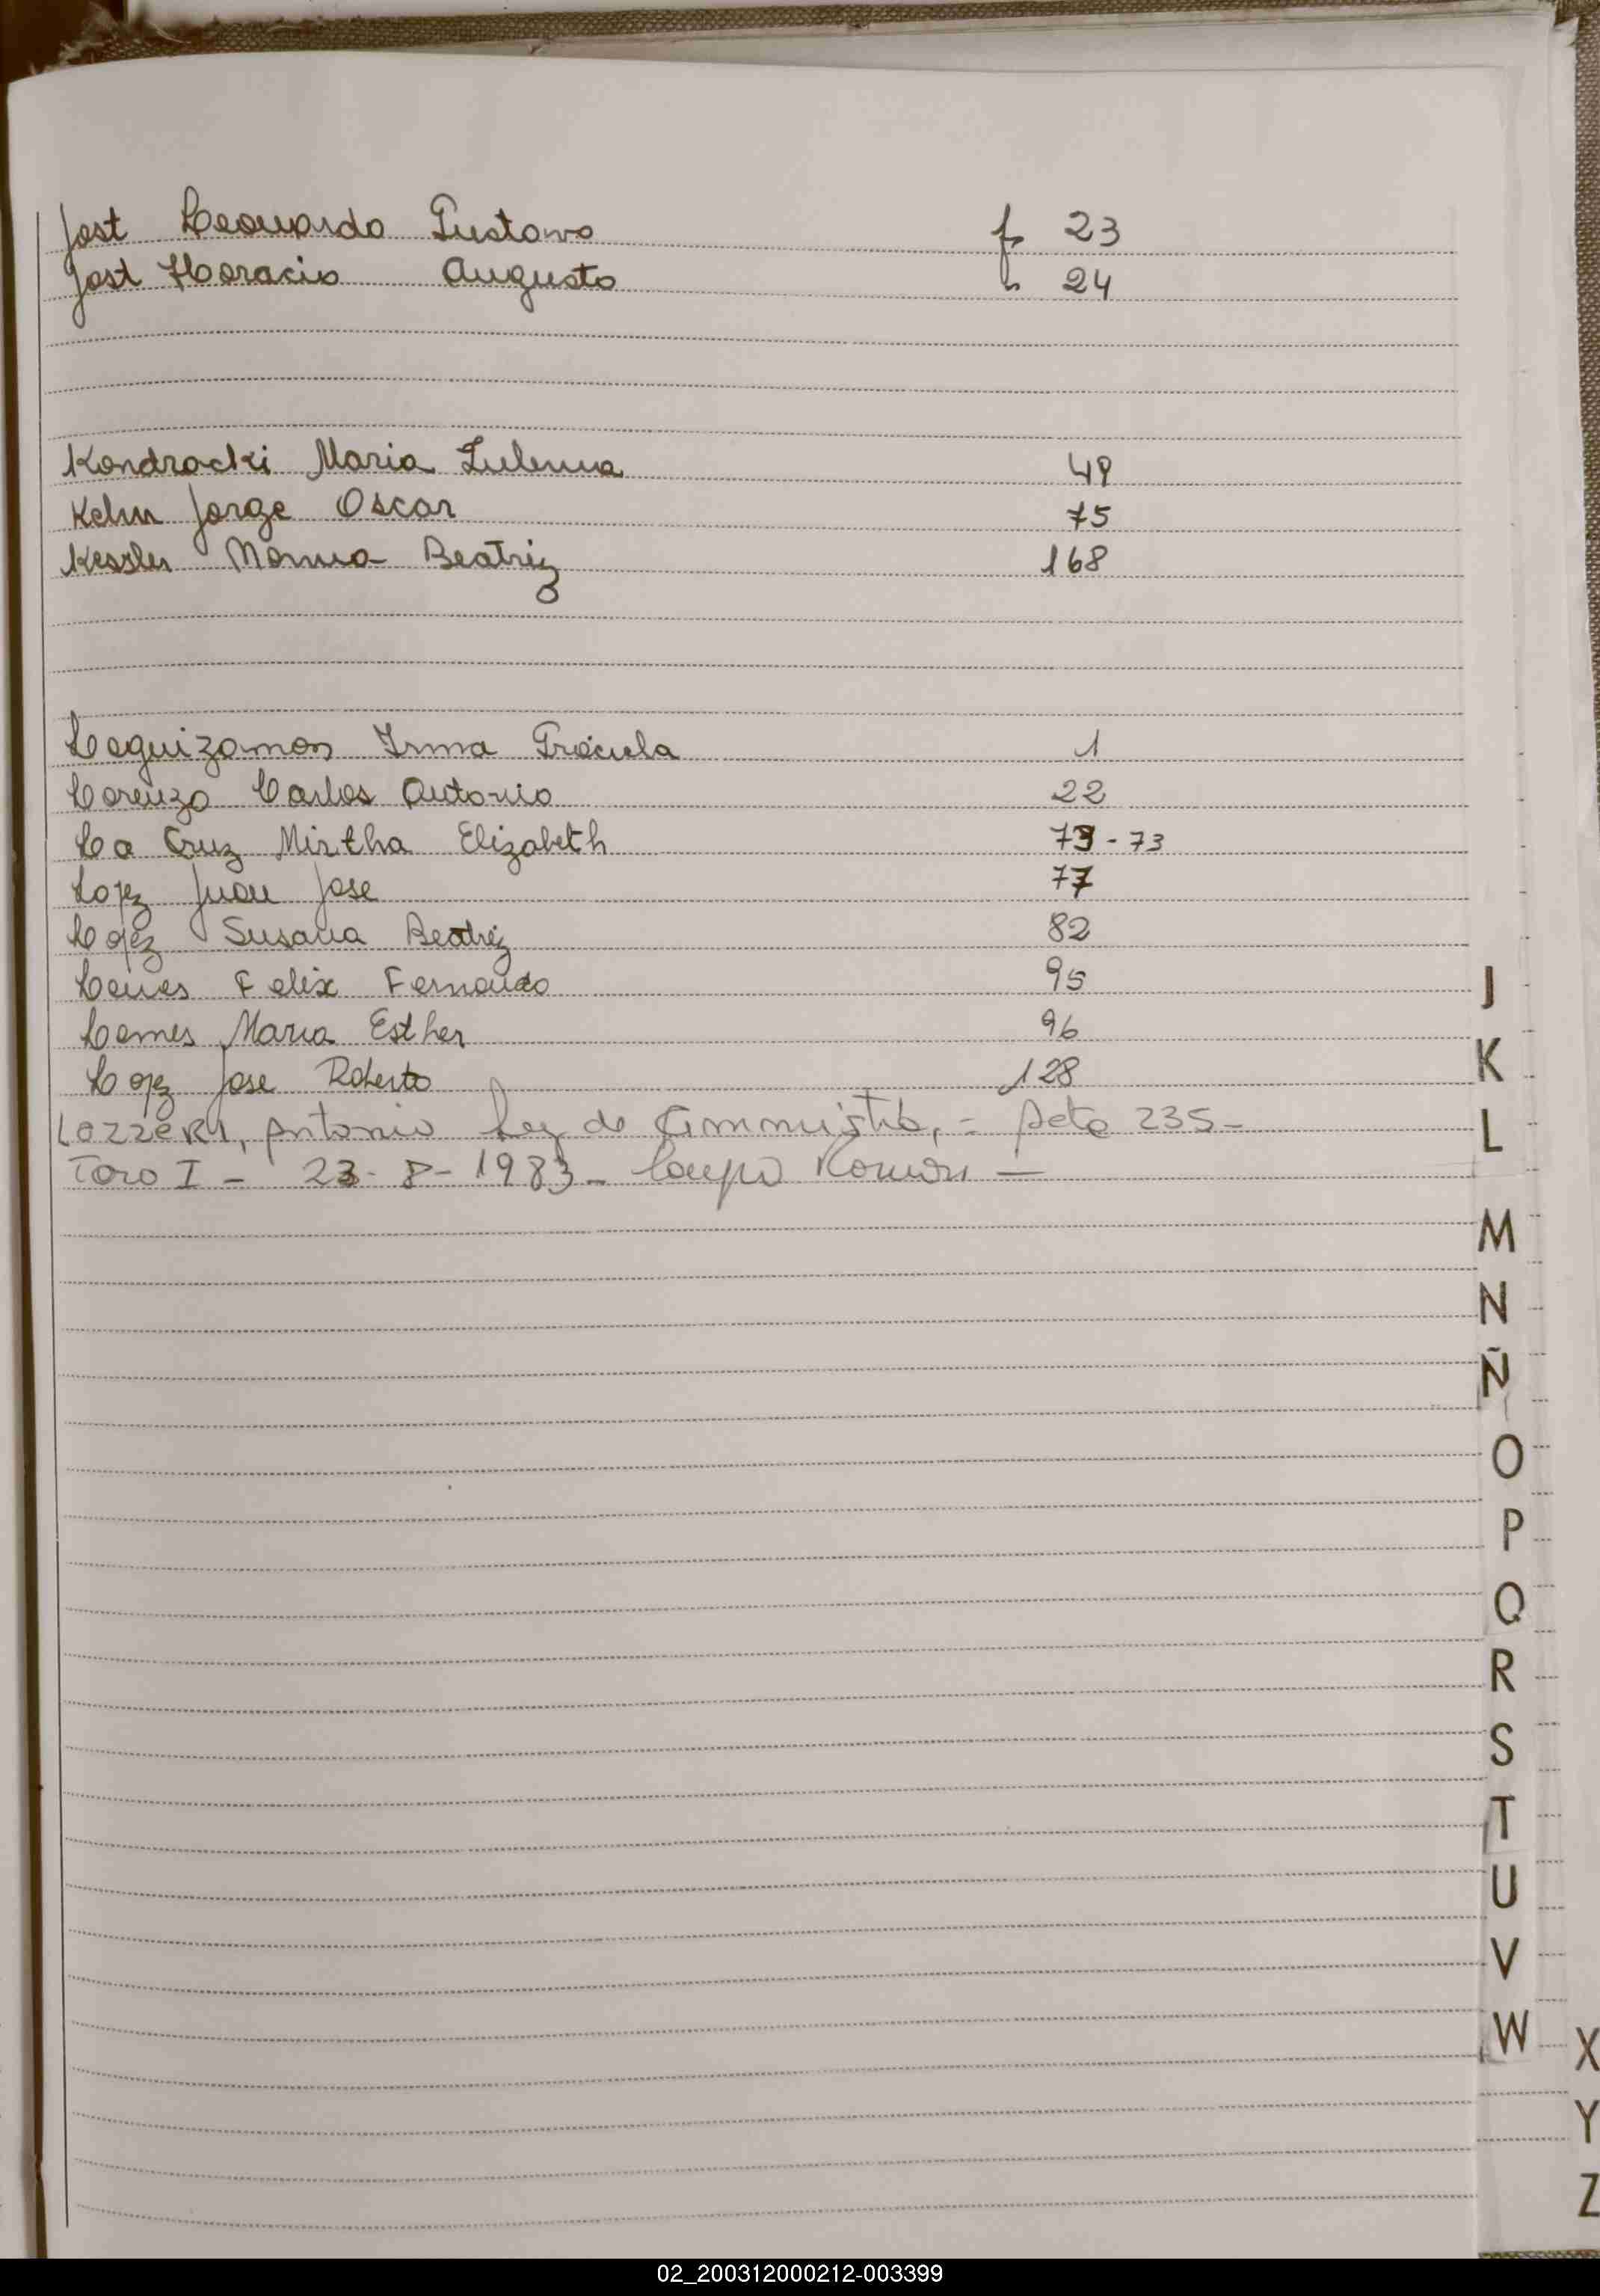 Jost Leonardo Gustavo f 23
Jost Horacio Augusto 24
Kondracki Maria Zulema 49
Kehn Jorge Oscar 75
Kessler Norma Beatriz 168
Leguizamon Irma Graciela 1
Lorenzo Carlos Antonio 22
La Cruz Mirtha Elizabeth 73 - 73
Lopez Juan Jose 77
Lopez Susana Beatriz 82
Lemes Felix Fernando 95
Lemes Maria Esther 96
Lopez Jose Roberto 128
LOZZERI, Antonio Ley de Acta 235-
I - 23-8-1983-
J
K
L
M
N
Ñ
O
P
Q
R
S
T
U
V
W
X
Y
Z
02_200312000212-003399